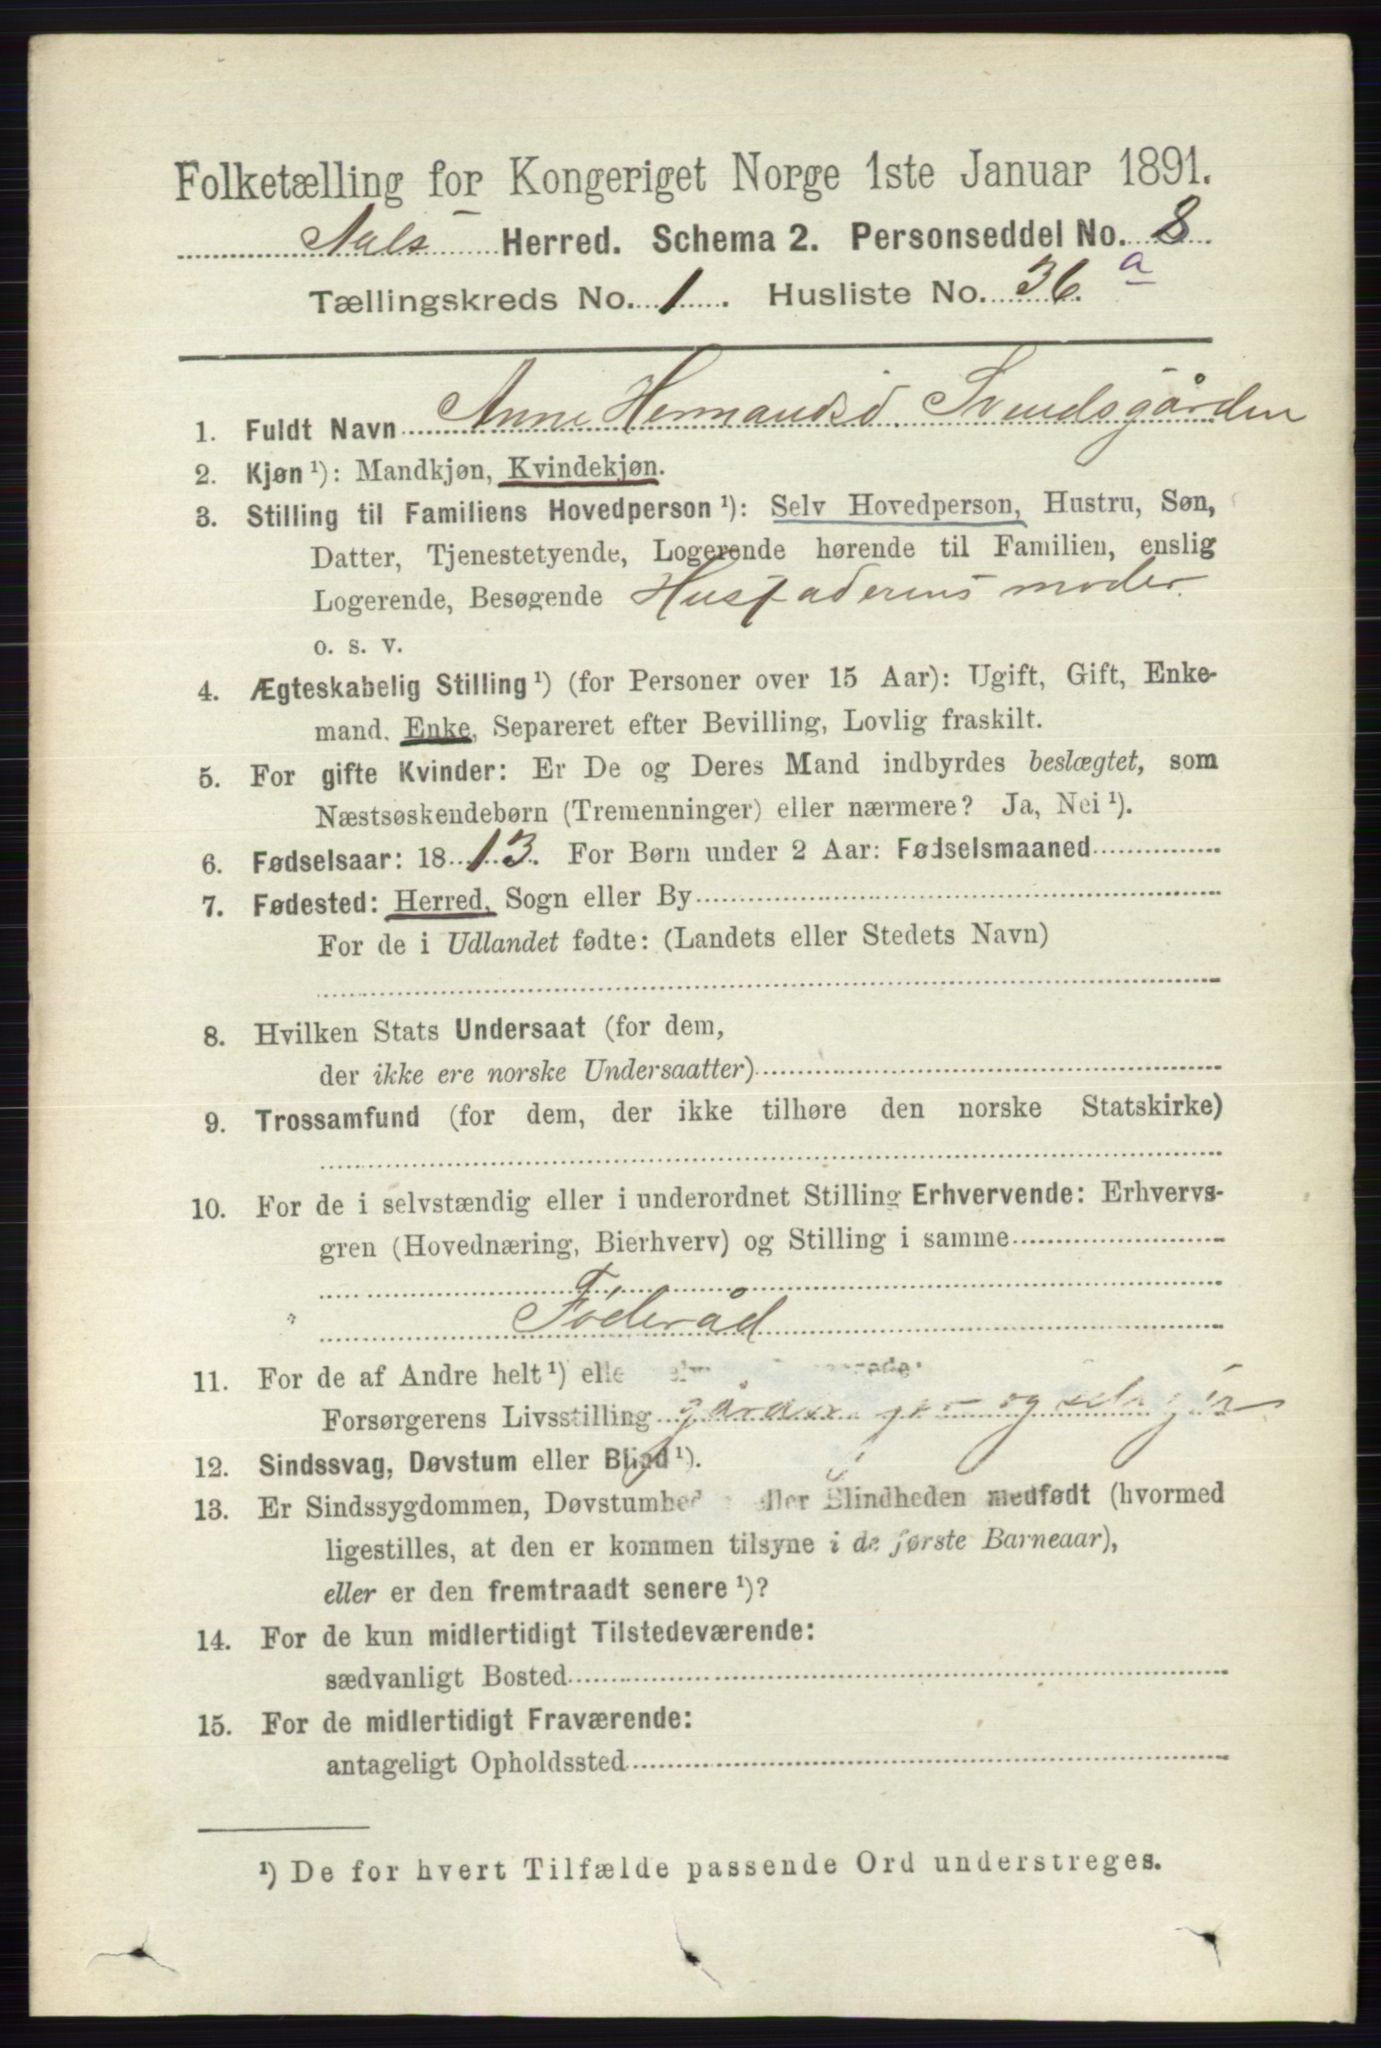 Folketælling for Kongeriget Norge 1ste Januar 1891.
Aals Herred. Schema 2. Personseddel No. 8
Tællingskreds No. 1. Husliste No. 36. a
1. Fuldt Navn Anne Hermandsd. Svendsgården
2. Kjøn ¹): Mandkjøn, Kvindekjøn.
3. Stilling til Familiens Hovedperson ¹): Selv Hovedperson, Hustru, Søn,
Datter, Tjenestetyende, Logerende hørende til Familien, enslig
Logerende, Besøgende Husfaderens moder.
o. s. v.
4. Ægteskabelig Stilling ¹) (for Personer over 15 Aar): Ugift, Gift, Enke-
mand, Enke, Separeret efter Bevilling, Lovlig fraskilt.
5. For gifte Kvinder: Er De og Deres Mand indbyrdes beslægtet, som
Næstsøskendebørn (Tremenninger) eller nærmere? Ja, Nei ¹).
6. Fødselsaar: 1813. For Børn under 2 Aar: Fødselsmaaned
7. Fødested: Herred, Sogn eller By
For de i Udlandet fødte: (Landets eller Stedets Navn)
8. Hvilken Stats Undersaat (for dem,
der ikke ere norske Undersaatter)
9. Trossamfund (for dem, der ikke tilhøre den norske Statskirke)
10. For de i selvstændig eller i underordnet Stilling Erhvervende: Erhvervs-
gren (Hovednæring, Bierhverv) og Stilling i samme
Føderåd
11. For de af Andre helt ¹)
Forsørgerens Livsstilling
12. Sindssvag, Døvstum eller Blind ¹).
13. Er Sindssygdommen, Døvstumhed eller Blindheden medfødt (hvormed
ligestilles, at den er kommen tilsyne i de første Barneaar),
eller er den fremtraadt senere ¹)?
14. For de kun midlertidigt Tilstedeværende:
sædvanligt Bosted
15. For de midlertidigt Fraværende:
antageligt Opholdssted
¹) De for hvert Tilfælde passende Ord understreges.